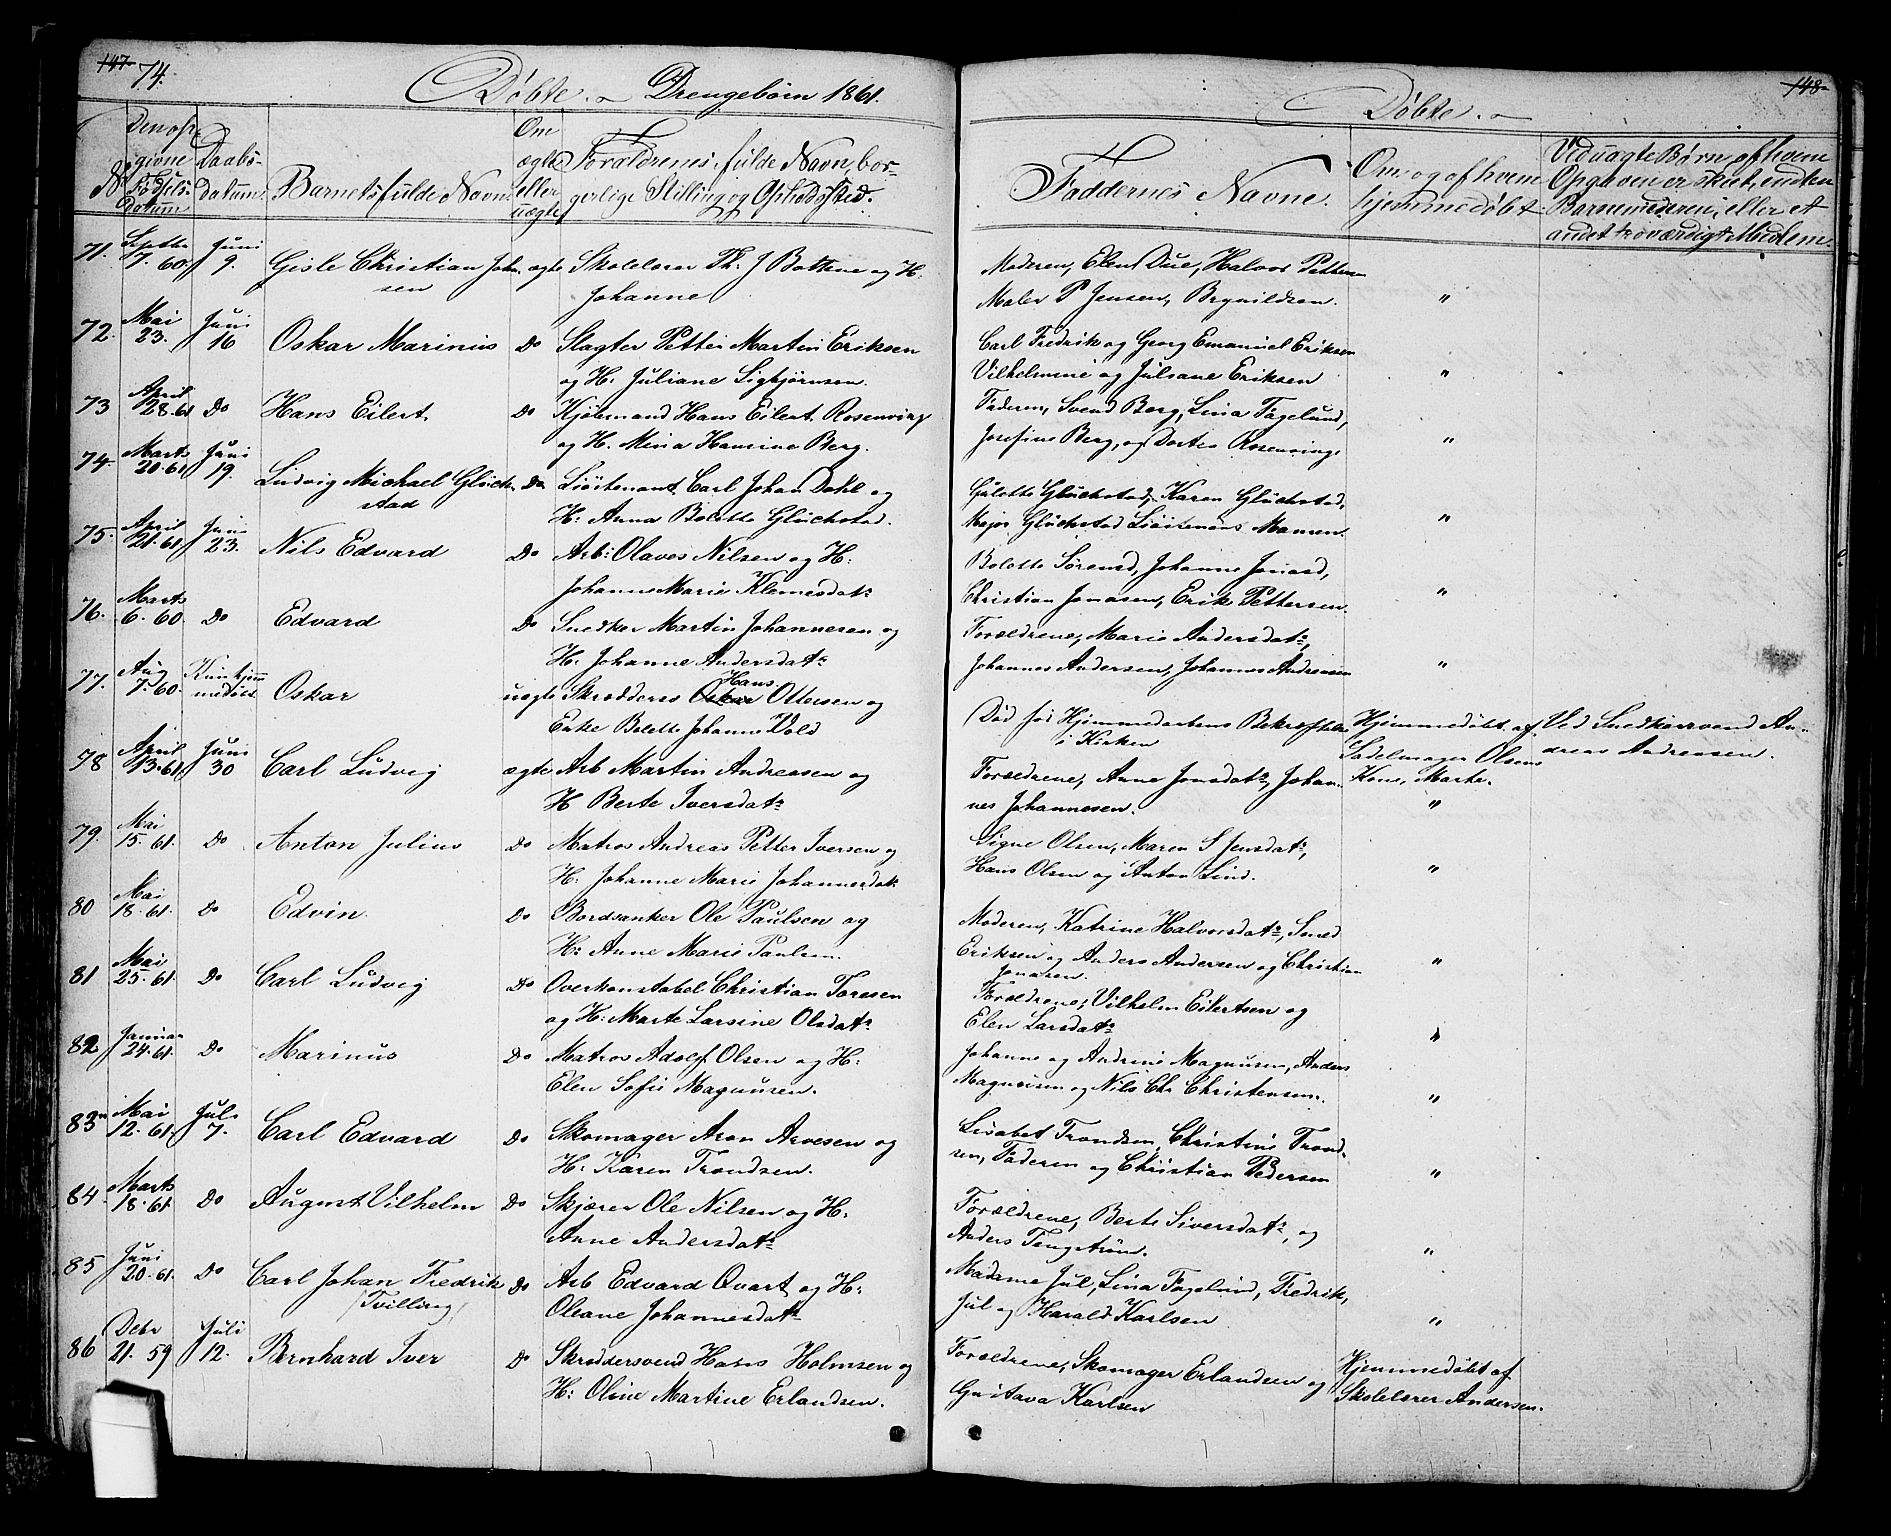 147. 74.
Döbte. Drengebörn 1861.
No
Den op-
givne
Födsels
datum
Daabs-
datum.
Barnets fulde Navn.
Om
ægte
eller
uægte
Forældrenes fulde Navn, bor-
gerlige Stilling og Opholdssted.
71. Septbr 7. 60. Juni 9. Gisle Christian Johan- ægte Skolelærer Th: J Bottene og H.
sen Johanne
72. Mai 23. Juni 16 Oskar Marinius Do Slagter Petter Martin Eriksen
og H. Juliane Sigbjörnsen.
73 April 28. 61 Do Hans Eilert. Do Kjöbmand Hans Eilert Rosenvinge
og H. Mina Hansine Berg.
74. Marts 20. 61 Juni 19. Ludvig Michael Glück- Do Liöitenant Carl Johan Dahl og
stad H: Anna Bolette Glückstad.
75. April 21. 61 Juni 23. Nils Edvard Do Arb: Olaves Nilsen og H:
Johanne Marie Klemesdatr
76. Marts 6. 60. Do Edvard Do Snedker Martin Johannesen og
H: Johanne Andersdatr
77. Aug 7. 60. Kun hjem
medöbt Oskar uægte Skrædder Oskar Hans Ottersen og
Enke Bolette Johanne Vold
78 April 13. 61 Juni 30 Carl Ludvig ægte Arb Martin Andreasen og
H Berte Iversdatr
79. Mai 15. 61. Do Anton Julius Do Matros Andreas Petter Iversen og
H: Johanne Marie Johannesdatr
80 Mai 18. 61. Do Edvin. Do Bordsanker Ole Paulsen og
H: Anne Marie Paulsen.
81 Mai 25. 61. Do Carl Ludvig Do Overkonstabel Christian Toresen
og H: Marte Larsine Olsdatr
82 Januar 24. 61. Do Marinus Do Matros Adolf Olsen og H:
Elen Sofie Magnusen.
83 Mai 12. 61. Juli 7. Carl Edvard Do Skomager Aron Arvesen og
H: Karen Trondsen.
84. Marts 18. 61 Do August Vilhelm Do Skjærer Ole Nilsen og H:
Anne Andersdatr
85 Juni 20. 61. Do Carl Johan Fredrik Do Arb Edvard Qvart og H:
(Tvilling) Oleane Johannesdatr
86 Debr 21. 59 Juli 12. Bernhard Iver Do Skræddersvend Hans Holmsen og
H: Oline Martine Erlandsen.
148
Döbte.
Faddernes Navne.
Om og af hvem
hjemmedöbt
Ved uægte Börn, af hvem
Opgaven er skeet, enten
Barnemoderen, eller et
andet troværdigt Medlem.
Moderen, Elen Due, Halvor Pettersen
Maler P Jensen, Brynildsen. "
Carl Fredrik og Georg Emanuel Eriksen
Vilhelmine og Julsane Eriksen "
Faderen, Svend Berg, Lina Fagelund,
Josefine Berg, og Dortea Rosenvinge "
Gulotte Glückstad, Karen Glückstad,
Major Glückstad Liöitenant Mamen. "
Bolette Sörensd, Johanne Jonasd,
Christian Jonasen, Erik Pettersen. "
Forældrene, Marie Andersdatr,
Johannes Andersen, Johannes Andreasen "
Död för Hjemmedaabens Bekræftelse Hjemmedöbt af Ved Snedkersvend An-
i Kirken Sadelmager Olsens dreas Andreasen.
Forældrene, Anne Jonsdatr, Johan- Kone, Marte.
nes Johannesen. "
Signe Olsen, Maren S Jensdatr,
Hans Olsen og Anton Lind. "
Moderen, Katrine Halvorsdatr, Smed
Eriksen og Anders Andersen og Christian
Jonasen. "
Forældrene, Vilhelm Eilertsen og
Elen Larsdatr "
Johanne og Andrine Magnusen, Anders
Magnusen og Nils Chr Christensen. "
Lisabet Trondsen, Christine Trond-
sen, Faderen og Christian Pedersen "
Forældrene, Berte Siversdatr, og
Anders Tengström. "
Madame Jul, Lina Fagelund, Fredrik,
Jul og Harald Karlsen "
Forældrene, Skomager Erlandsen og Hjemmedöbt af
Gustava Karlsen Skolelærer Andersen.